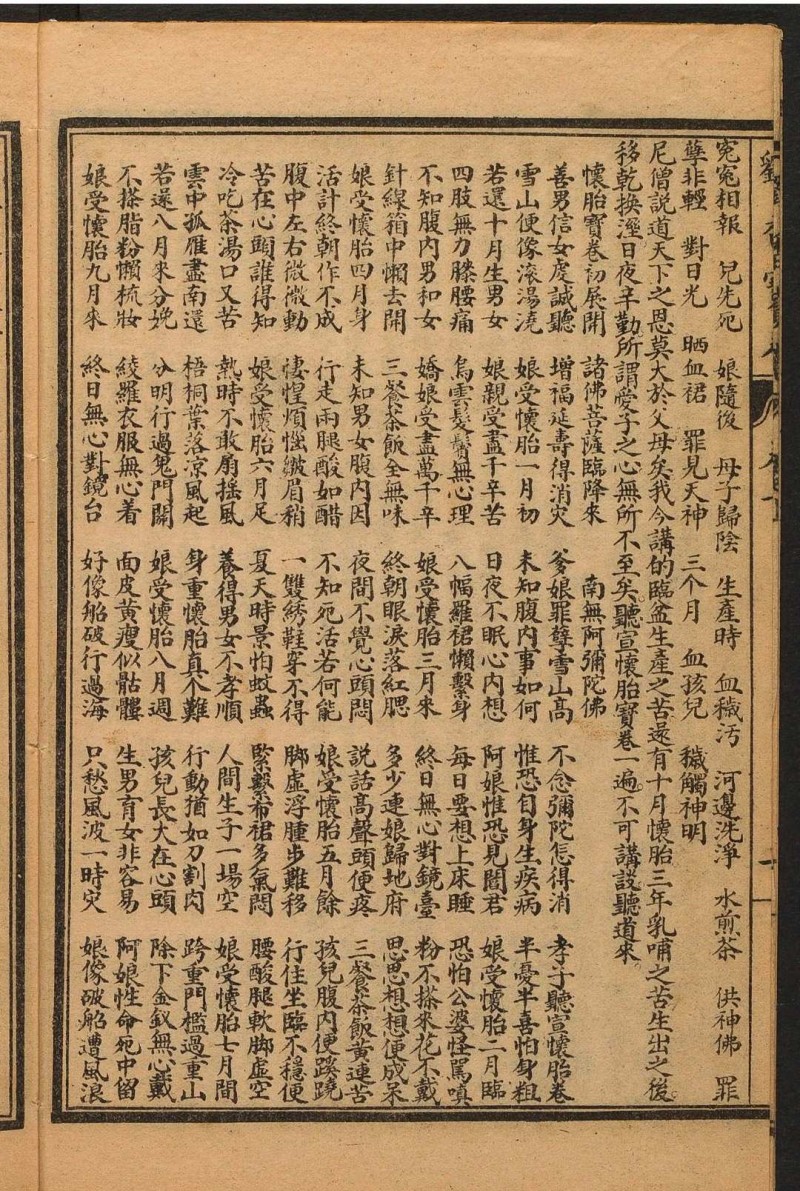 冤冤相報　兒先死　娘隨後　母子歸陰　生產時　血穢污　河邊洗淨　水煎茶　供神佛　罪
孽非輕　對日光　晒血裙　罪見天神　三个月　血孩兒　穢觸神明
尼僧說道天下之恩莫大於父母矣我今講的臨盆生產之苦還有十月懷胎三年乳哺之苦生出之後
移乾換溼日夜辛勤所謂愛子之心無所不至矣聽宣懷胎寶卷一遍不可講談聽道來
懷胎寶卷初展開　諸佛菩薩臨降來　南無阿彌陀佛
善男信女虔誠聽　增福延壽得消災　爹娘罪孽雪山高　不念彌陀怎得消　孝子聽宣懷胎卷
雪山便像滾湯澆　娘受懷胎一月初　未知腹內事如何　惟恐自身生疾病　半憂半喜怕身粗
若還十月生男女　娘親受盡千辛苦　日夜不眠心內想　阿娘惟恐見閻君　娘受懷胎二月臨
四肢無力膝腰痛　烏雲髮鬢無心理　八幅羅裙懶繫身　每日要想上床睡　恐怕公婆怪罵嗔
不知腹內男和女　嬌娘受盡萬千辛　娘受懷胎三月來　終日無心對鏡臺　粉不搽來花不戴
針線箱中懶去開　三餐茶飯全無味　終朝眼淚落紅腮　多少連娘歸地府　思思想想便成呆
娘受懷胎四月身　未知男女腹內因　夜間不覺心頭悶　說話高聲頭便疼　三餐茶飯黃連苦
活計終朝作不成　行走兩腿酸如醋　不知死活若何能　娘受懷胎五月餘　孩兒腹內便蹊蹺
腹中左右微微動　悽惶煩惱縐眉稍　一雙綉鞋穿不得　脚虛浮腫步難移　行住坐臨不穩便
苦在心頭誰得知　娘受懷胎六月足　夏天時景怕蚊蟲　緊繫希裙多氣悶　腰酸腿軟脚虛空
冷吃茶湯口又苦　熱時不敢扇搖風　養得男女不孝順　人間生子一場空　娘受懷胎七月間
雲中孤雁盡南還　梧桐葉落凉風起　身重懷胎真个難　行動猶如刀割肉　跨重門檻過重山
若還八月來分娩　分明行過鬼門關　娘受懷胎八月週　孩兒長大在心頭　除下金釵無心戴
不搽脂粉懶梳妝　綾羅衣服無心着　面皮黃瘦似骷髏　生男育女非容易　阿娘性命死中留
娘受懷胎九月來　終日無心對鏡台　好像船破行過海　只愁風波一時灾　娘像破船遭風浪